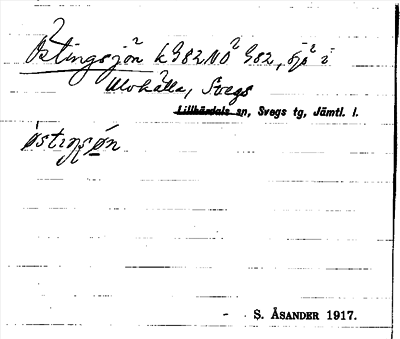 Östingsjön k982NÖ²982, sjö i
Ulvkälla, Svegs
Lillhärdals sn, Svegs tg, Jämtl. l.
östıŋsǿn
S. ÅSANDER 1917.